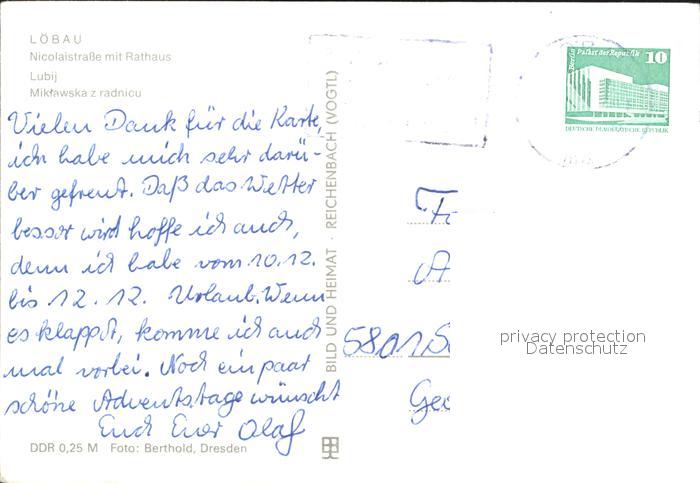 LÖBAU
Nicolaistraße mit Rathaus
Lubij
Mikławska z radnicu
Vielen Dank für die Karte,
ich habe mich sehr darü-
ber gefreut. Daß das Wetter
besser wird hoffe ich auch,
denn ich habe vom 10.12.
bis 12.12. Urlaub. Wenn
es klappt, komme ich auch
mal vorbei. Noch ein paar
schöne Adventstage wünscht
Euch Euer Olaf
DDR 0,25 M Foto: Berthold, Dresden
BILD UND HEIMAT · REICHENBACH (VOGTL)
Berlin Palast der Republik 10
DEUTSCHE DEMOKRATISCHE REPUBLIK
5801
privacy protection
Datenschutz